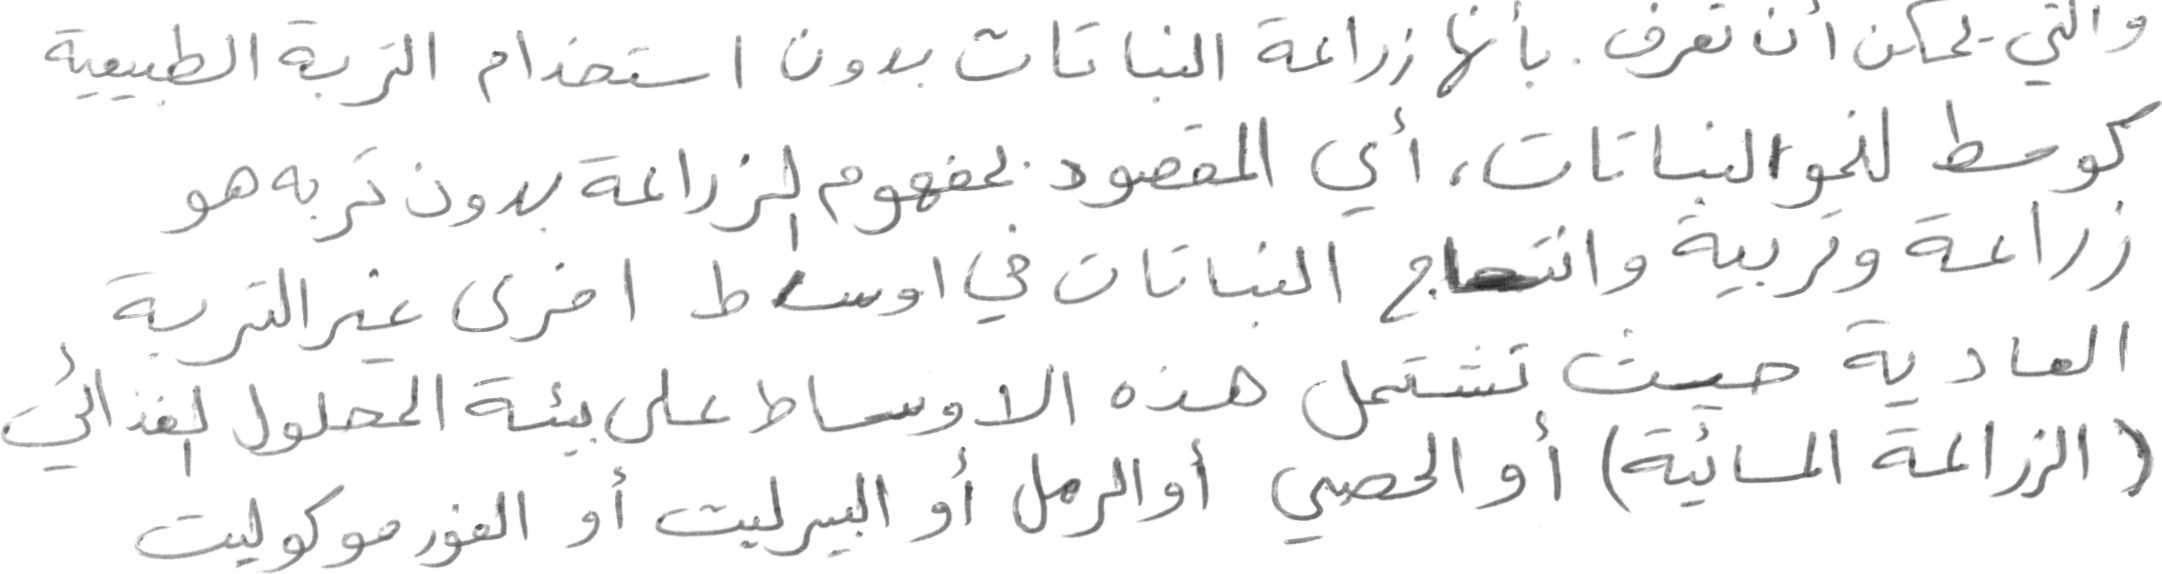 والتي يمكن أن تعرف بأنها زراعة النباتات بدون استخدام التربة الطبيعية
كوسط لنمو النباتات، أي المقصود بمفهوم الزراعة بدون تربه هو
زراعة وتربية وانتاج النباتات في اوساط اخرى غير التربة
العادية حيث تشتمل هذه الاوساط على بيئة المحلول الغذائي
(الزراعة المائية) أو الحصى أو الرمل أو البيرليت أو الفورموكوليت